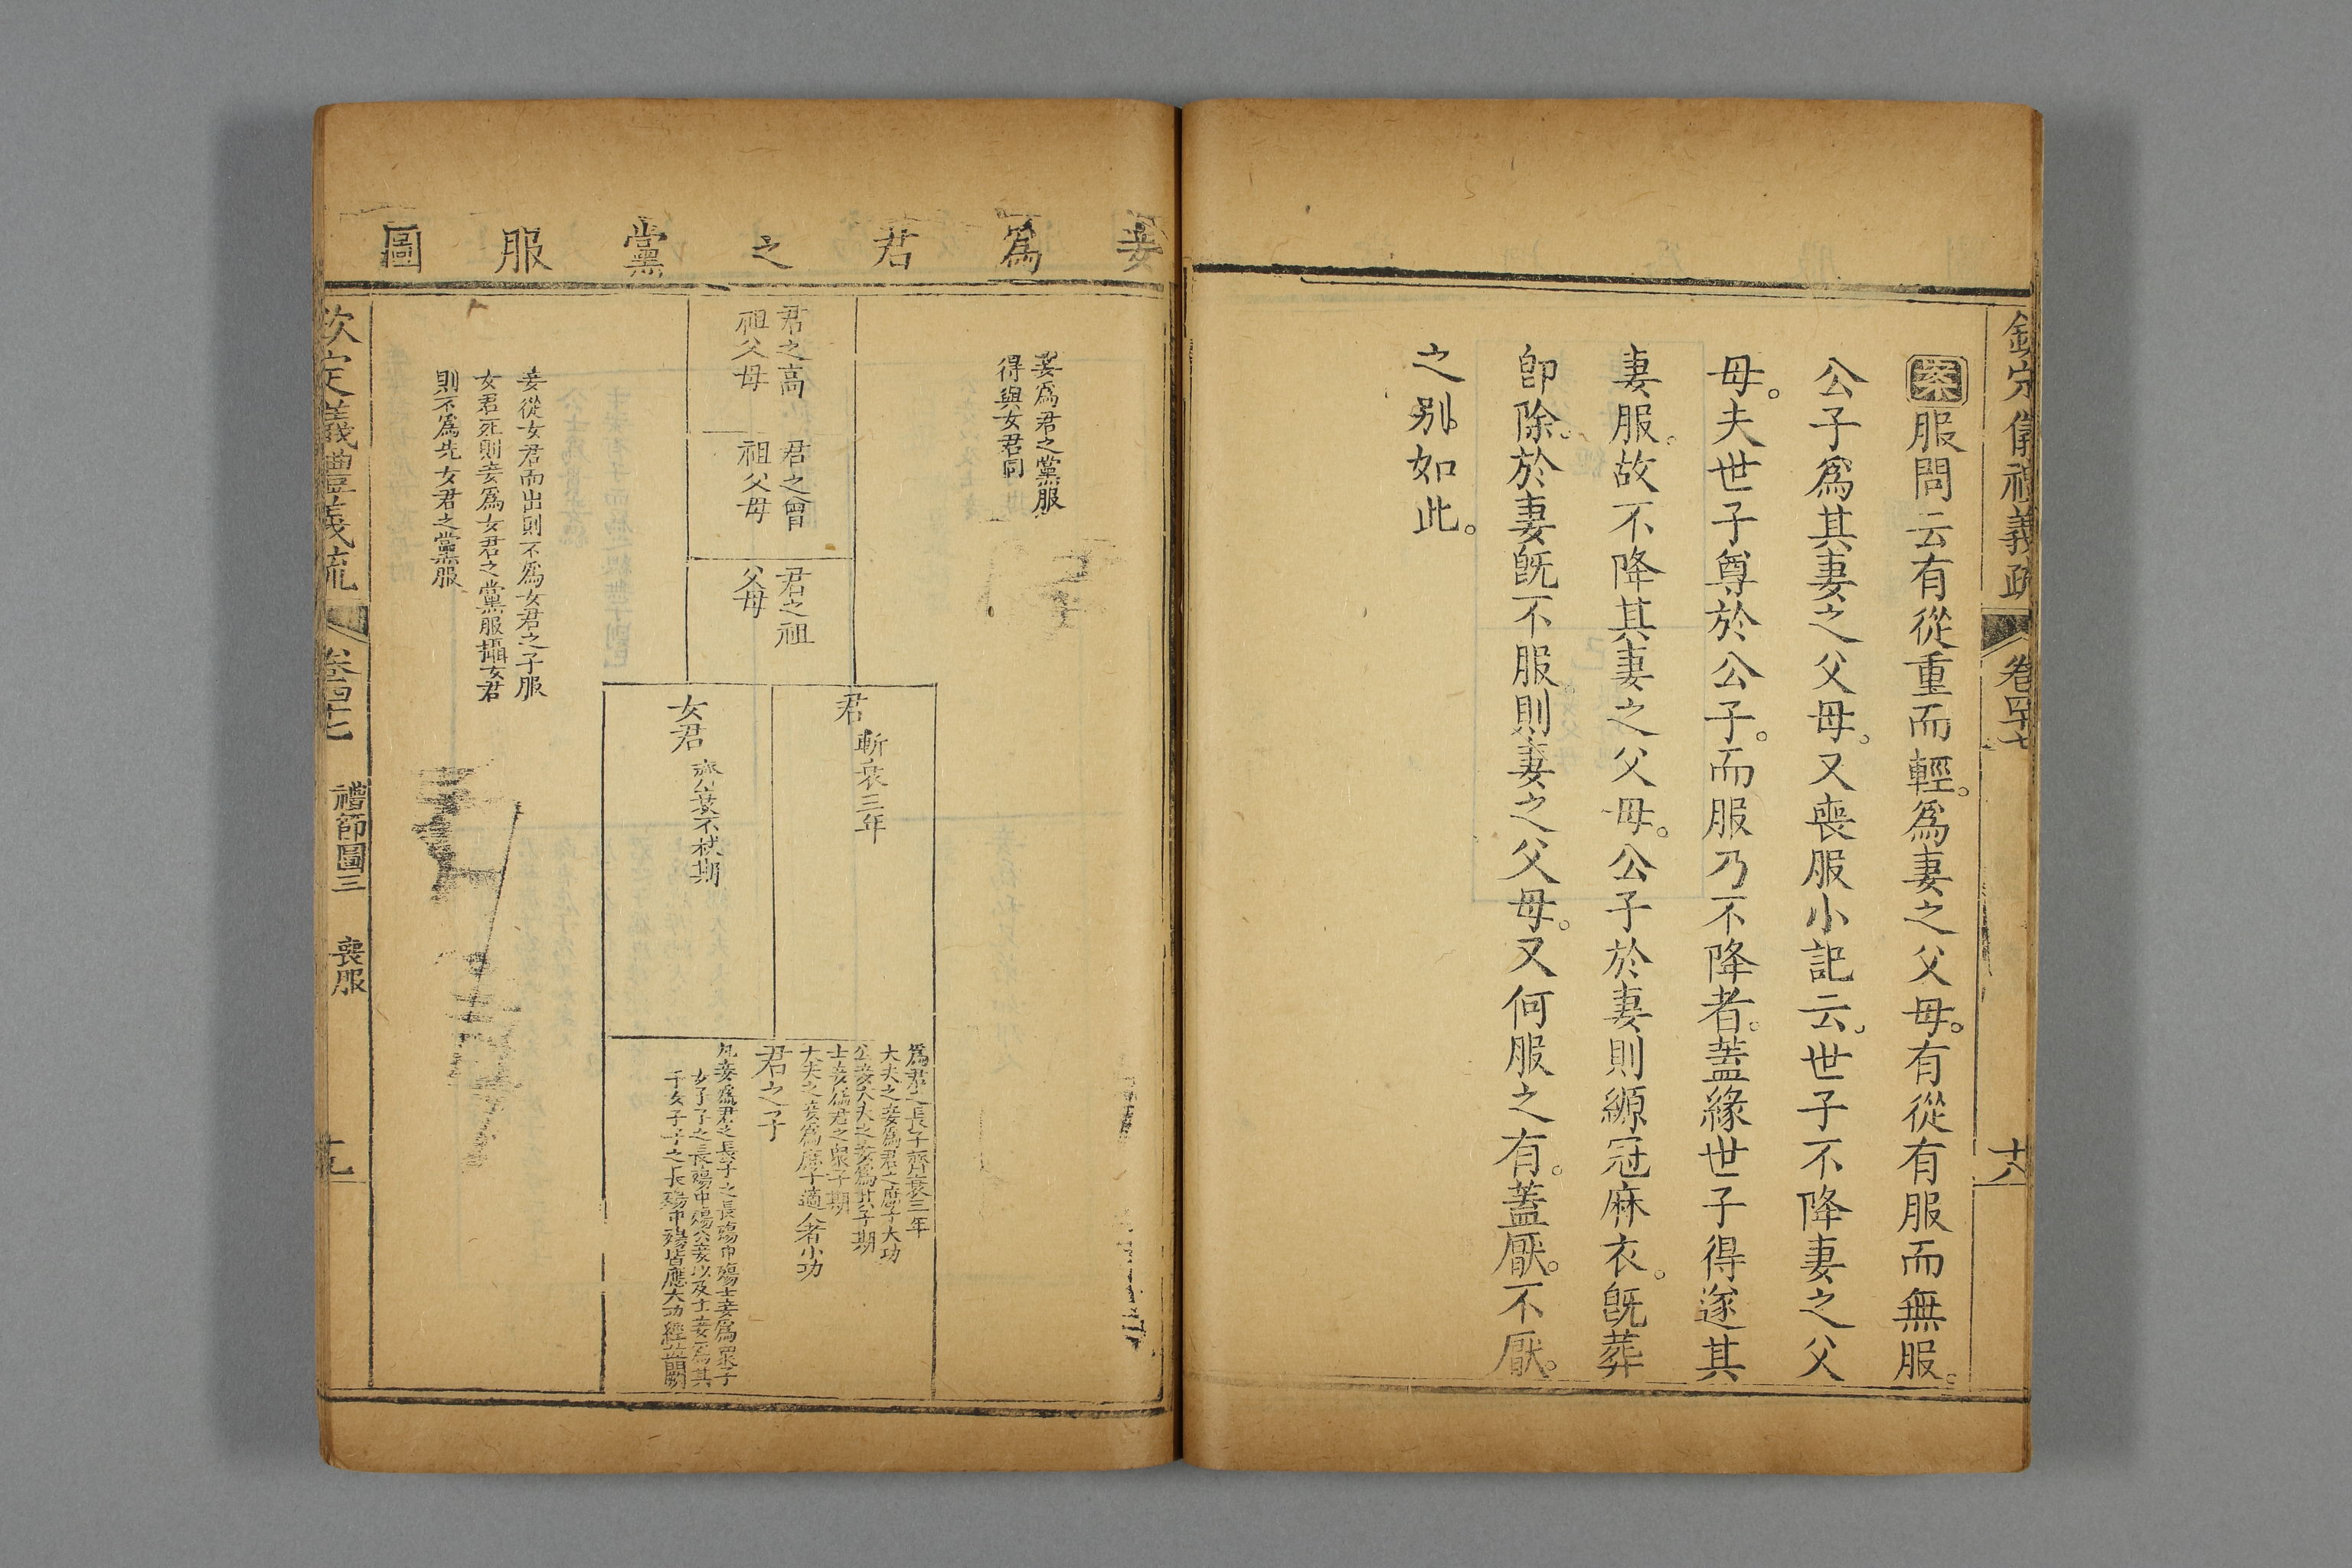 欽定儀禮義疏 卷四十七 十八
案服問云有從重而輕。爲妻之父母。有從有服而無服。
公子爲其妻之父母。又喪服小記云。世子不降妻之父
母。夫世子尊於公子。而服乃不降者。蓋緣世子得遂其
妻服。故不降其妻之父母。公子於妻則縓冠麻衣。旣葬
卽除。於妻旣不服則妻之父母。又何服之有。蓋厭。不厭。
之別。如此。
妾爲君之黨服圖
妾爲君之黨服
得與女君同
君之高
祖父母
君之曾
祖父母
君之祖
父母
君 斬衰三年
女君 齊衰不杖期
爲君之長子齊衰三年
大夫之妾爲君之庶子大功
公妾大夫之妾爲其子期
士妾爲君之衆子期
大夫之妾爲庶子適人者小功
君之子
凡妾爲君之長子之長殤中殤士妾爲衆子
女子子之長殤中殤公妾以及士妾爲其
子女子子之長殤中殤皆應大功經並闕
妾從女君而出則不爲女君之子服
女君死則妾爲女君之黨服攝女君
則不爲先女君之黨服
欽定儀禮義疏 卷四十七 禮節圖三 喪服 十九